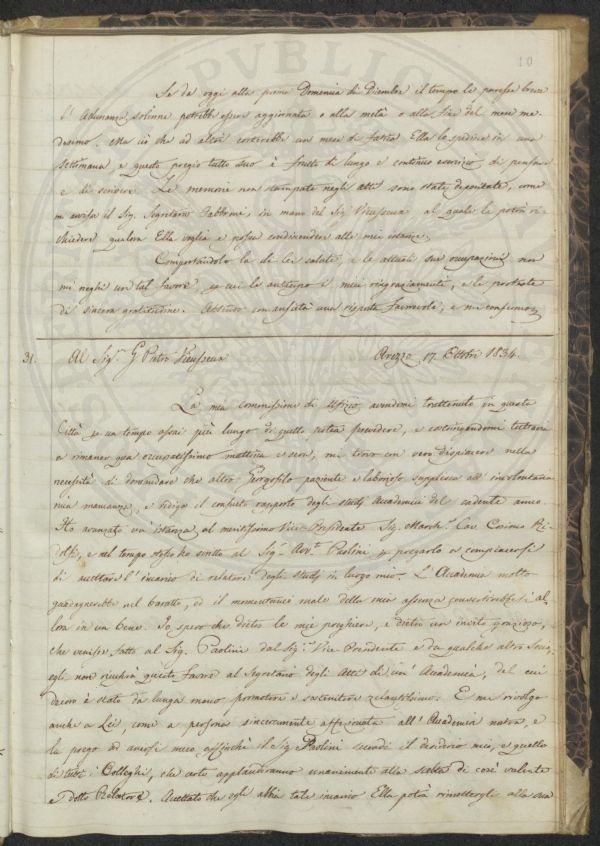 10
Se da oggi alla prima Domenica di Dicembre il tempo le paresse breve
l'Adunanza solenne potrebbe esser aggiornata o alla metà o alla fine del mese me-
desimo. Ma ciò che ad altri costerebbe un mese di fatica Ella lo spedisce in una
settimana e questo pregio tutto suo è frutto di lungo e continuo esercizio di pensare
e di scrivere. Le memorie non stampate negli atti sono state depositate, come
m'avvisa il Sig. Segretario Fabbroni, in mano del Sig. Vieusseux al quale le potrà ri-
chiedere qualora Ella voglia e possa condiscendere alle mie istanze.
Comportandolo la di lei salute, e le attuali sue occupazioni non
mi neghi un tal favore, per cui le anticipo i miei ringraziamenti, e le proteste
di sincera gratitudine. Attendo con ansietà una risposta favorevole, e mi confermo
31. Al Sig.r G. Pietro Vieusseux Arezzo 17 Ottobre 1834.
La mia commissione di Ufizio avendomi trattenuto in questa
Città per un tempo assai più lungo di quello potea prevedere, e costringendomi tuttavia
a rimaner qua occupatissimo mattina e sera, mi trovo con vero dispiacere nella
necessità di domandare che altro Georgofilo paziente e laborioso supplisca all'involontaria
mia mancanza, e rediga il consueto rapporto degli studj Accademici del cadente anno.
Ho avanzato un'istanza al meritissimo Vice-Presidente Sig. March.e Cav. Cosimo Ri-
dolfi, e nel tempo stesso ho scritto al Sig.r Avv.to Paolini per pregarlo a compiacersi
di accettare l'incarico di relatore degli studj in luogo mio. L'Accademia molto
guadagnerebbe nel baratto, ed il momentaneo male della mia assenza convertirebbesi al-
lora in un bene. Io spero che dietro le mie preghiere, e dietro un invito grazioso,
che venisse fatto al Sig. Paolini dal Sig.r Vice Presidente e da qualche altro Socio,
egli non ricuserà questo favore al Segretario degli Atti di un'Accademia, del cui
decoro è stato da lunga mano promotore e sostenitore zelantissimo. E mi rivolgo
anche a Lei, come a persona sinceramente affezionata all'Accademia nostra, e
la prego ad unirsi meco affinchè il Sig. Paolini secondi il desiderio mio, e quello
di tutti i Colleghi, che certo applaudiranno unanimente alla scelta di così valente
e dotto Relatore. Accettato che egli abbia tale incarico Ella potrà rimettergli alla sua